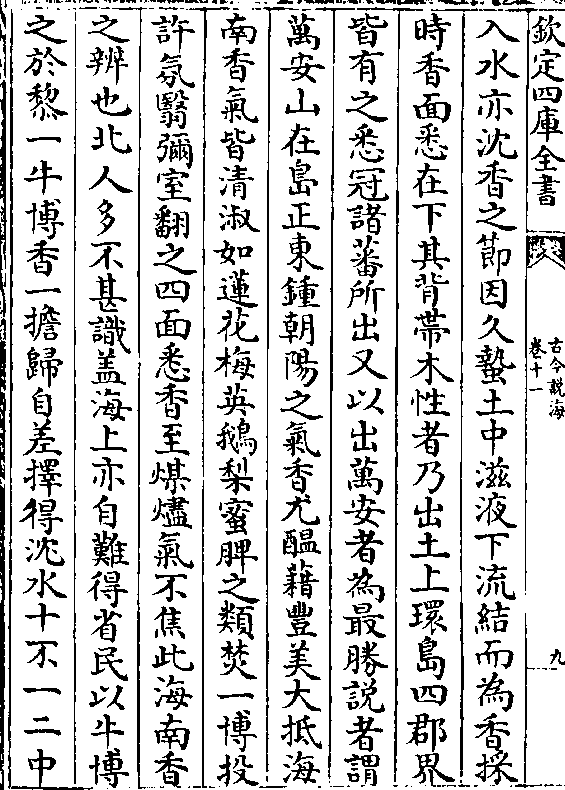 欽定四庫全書
古今說海
卷十一
九
入水亦沈香之節因久蟄土中滋液下流結而為香採
時香面悉在下其背帶木性者乃出土上環島四郡界
皆有之悉冠諸蕃所出又以出萬安者為最勝説者謂
萬安山在島正東鍾朝陽之氣香尤醖藉豐美大抵海
南香氣皆清淑如蓮花梅英鵝梨蜜脾之類焚一博投
許氛翳彌室翻之四面悉香至煤燼氣不焦此海南香
之辨也北人多不甚識盖海上亦自難得省民以牛博
之於黎一牛博香一擔歸自差擇得沈水十不一二中